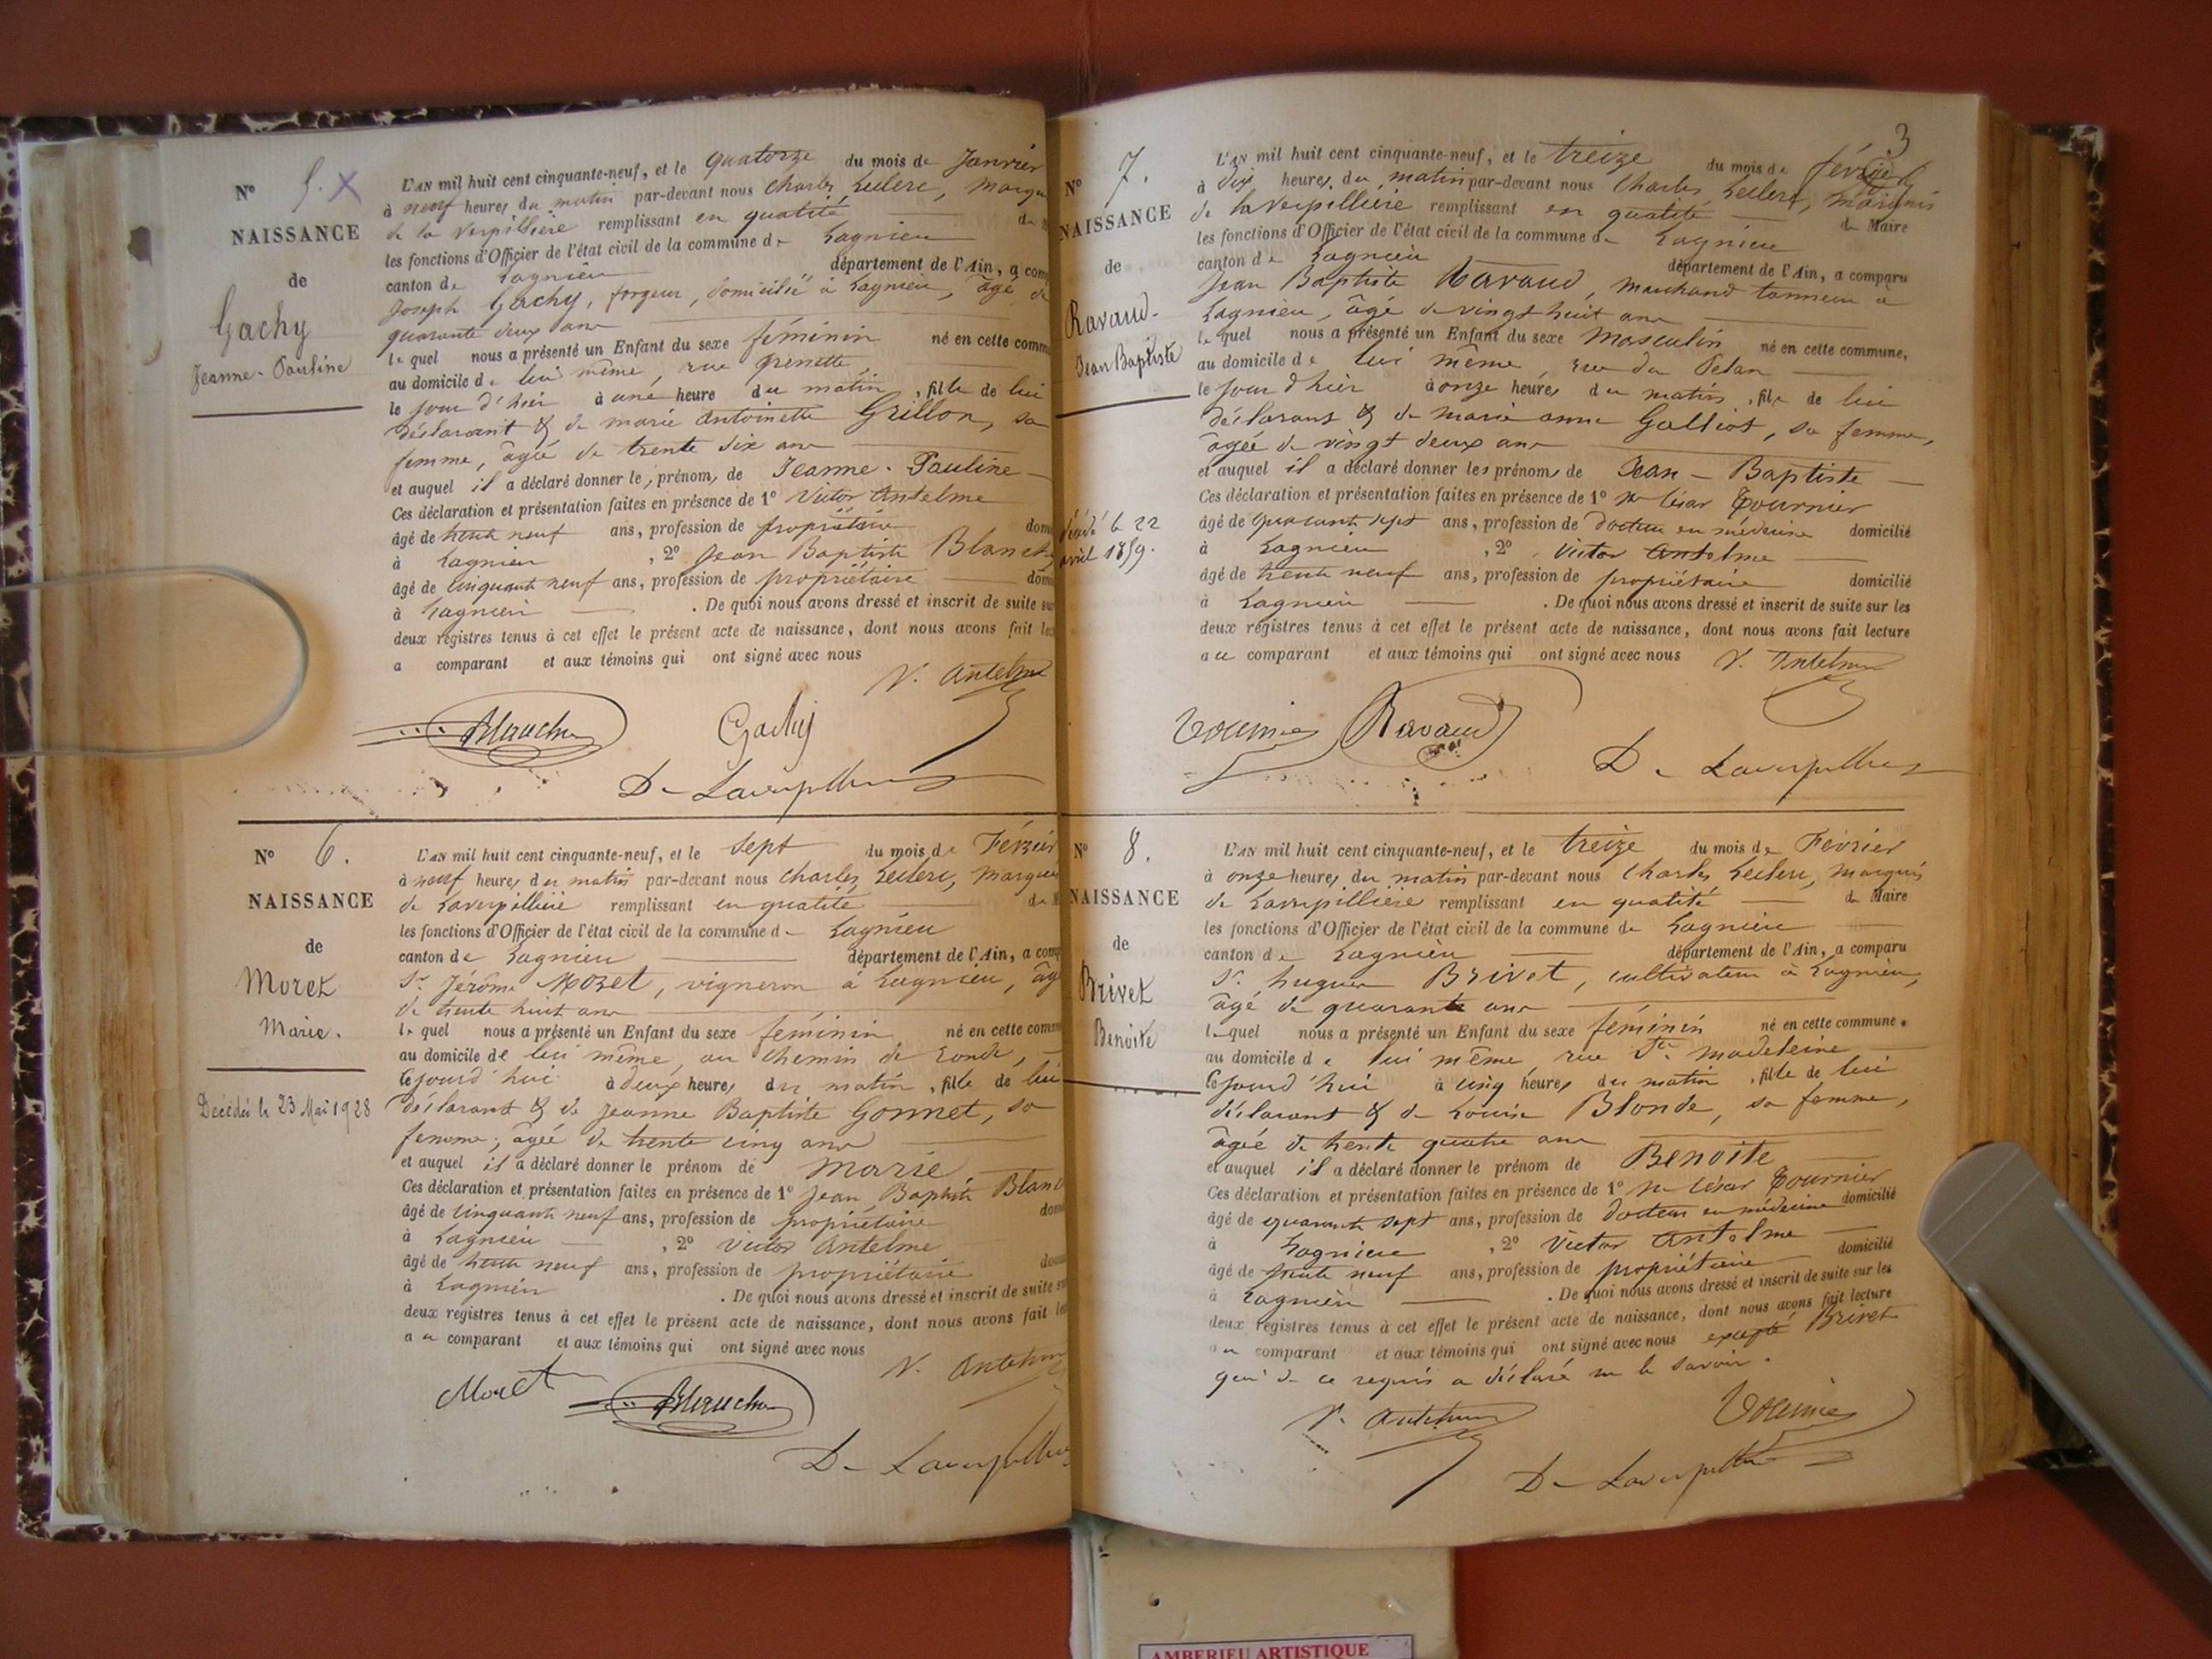 N° 5. X
NAISSANCE
de
Gachy
Jeanne-Pauline
L'AN mil huit cent cinquante-neuf, et le quatorze du mois de Janvier
à neuf heures du matin par-devant nous Charles Leclerc, Marqu
de la Verpilière remplissant en qualité de
les fonctions d'Officier de l'état civil de la commune de Lagnieu
canton de Lagnieu département de l'Ain, a com
Joseph Gachy, forgeur, domicilié à Lagnieu, âgé de
quarante deux ans
lequel nous a présenté un Enfant du sexe féminin né en cette comm
au domicile de lui même, rue Grenette
le jour d'hier à une heure du matin, fille de lui
déclarant & de marie Antoinette Grillon, sa
femme, âgée de trente six ans
et auquel il a déclaré donner les prénoms de Jeanne-Pauline
Ces déclaration et présentation faites en présence de 1° Victor Antelme
âgé de trente neuf ans, profession de propriétaire dom
à Lagnieu, 2° Jean Baptiste Blanch
âgé de cinquante neuf ans, profession de propriétaire dom
à Lagnieu. De quoi nous avons dressé et inscrit de suite su
deux régistres tenus à cet effet le présent acte de naissance, dont nous avons fait lec
a comparant et aux témoins qui ont signé avec nous
V. Antelme
Gachy
N° 6.
NAISSANCE
de
Moret
Marie.
Décédée le 23 Mai 1928
L'AN mil huit cent cinquante-neuf, et le sept du mois de Février
à neuf heures du matin par-devant nous Charles Leclerc, Marquis
de Laverpillière remplissant en qualité de M
les fonctions d'Officier de l'état civil de la commune de Lagnieu
canton de Lagnieu département de l'Ain, a comp
Sr Jérôme Moret, vigneron à Lagnieu, âg
de trente huit ans
lequel nous a présenté un Enfant du sexe féminin né en cette comm
au domicile de lui même, au chemin de Ronde,
cejourd'hui à deux heures du matin, fille de lui
déclarant & de Jeanne Baptiste Gonnet, sa
femme, âgée de trente cinq ans
et auquel il a déclaré donner le prénom de marie
Ces déclaration et présentation faites en présence de 1° Jean Baptiste Blanc
âgé de cinquante neuf ans, profession de propriétaire dom
à Lagnieu, 2° Victor Antelme
âgé de trente neuf ans, profession de propriétaire dom
à Lagnieu. De quoi nous avons dressé et inscrit de suite su
deux régistres tenus à cet effet le présent acte de naissance, dont nous avons fait le
au comparant et aux témoins qui ont signé avec nous
V. Antelme
Moret
3
N° 7.
NAISSANCE
de
Ravaud-
Jean Baptiste
décédé le 22
avril 1859.
L'AN mil huit cent cinquante-neuf, et le treize du mois de février
à dix heures du matin par-devant nous Charles Leclerc, Marquis
de laVerpillière remplissant en qualité de Maire
les fonctions d'Officier de l'état civil de la commune de Lagnieu
canton de Lagnieu département de l'Ain, a comparu
Jean Baptiste Ravaud, marchand tanneur à
Lagnieu, âgé de vingt huit ans
lequel nous a présenté un Enfant du sexe Masculin né en cette commune,
au domicile de lui même, rue du
le jour d'hier à onze heures du matin, fils de lui
déclarant & de marie anne Galliot, sa femme,
âgée de vingt deux ans
et auquel il a déclaré donner les prénoms de Jean-Baptiste
Ces déclaration et présentation faites en présence de 1° Mr César Tournier
âgé de quarante sept ans, profession de docteur en médecine domicilié
à Lagnieu, 2° Victor Antelme
âgé de trente neuf ans, profession de propriétaire domicilié
à Lagnieu. De quoi nous avons dressé et inscrit de suite sur les
deux régistres tenus à cet effet le présent acte de naissance, dont nous avons fait lecture
au comparant et aux témoins qui ont signé avec nous V. Antelme
Ravaud
N° 8.
NAISSANCE
de
Brivet
Benoite
L'AN mil huit cent cinquante-neuf, et le treize du mois de Février
à onze heures du matin par-devant nous Charles Leclerc, Marquis
de Laverpillière remplissant en qualité de Maire
les fonctions d'Officier de l'état civil de la commune de Lagnieu
canton de Lagnieu département de l'Ain, a comparu
Sr hugues Brivet, cultivateur à Lagnieu,
âgé de quarante ans
lequel nous a présenté un Enfant du sexe féminin né en cette commune.
au domicile de lui même rue Ste Madeleine
cejourd'hui à cinq heures du matin, fille de lui
déclarant & de Louise Blonde, sa femme,
âgée de trente quatre ans
et auquel il a déclaré donner le prénom de Benoite
Ces déclaration et présentation faites en présence de 1° Mr César Tournier
âgé de quarante sept ans, profession de docteur en médecine domicilié
à Lagnieu, 2° Victor Antelme
âgé de trente neuf ans, profession de propriétaire domicilié
à Lagnieu. De quoi nous avons dressé et inscrit de suite sur les
deux régistres tenus à cet effet le présent acte de naissance, dont nous avons fait lecture
au comparant et aux témoins qui ont signé avec nous excepté Brivet
qui de ce requis a déclaré ne le savoir.
V. Antelme
AMBERIEU ARTISTIQUE